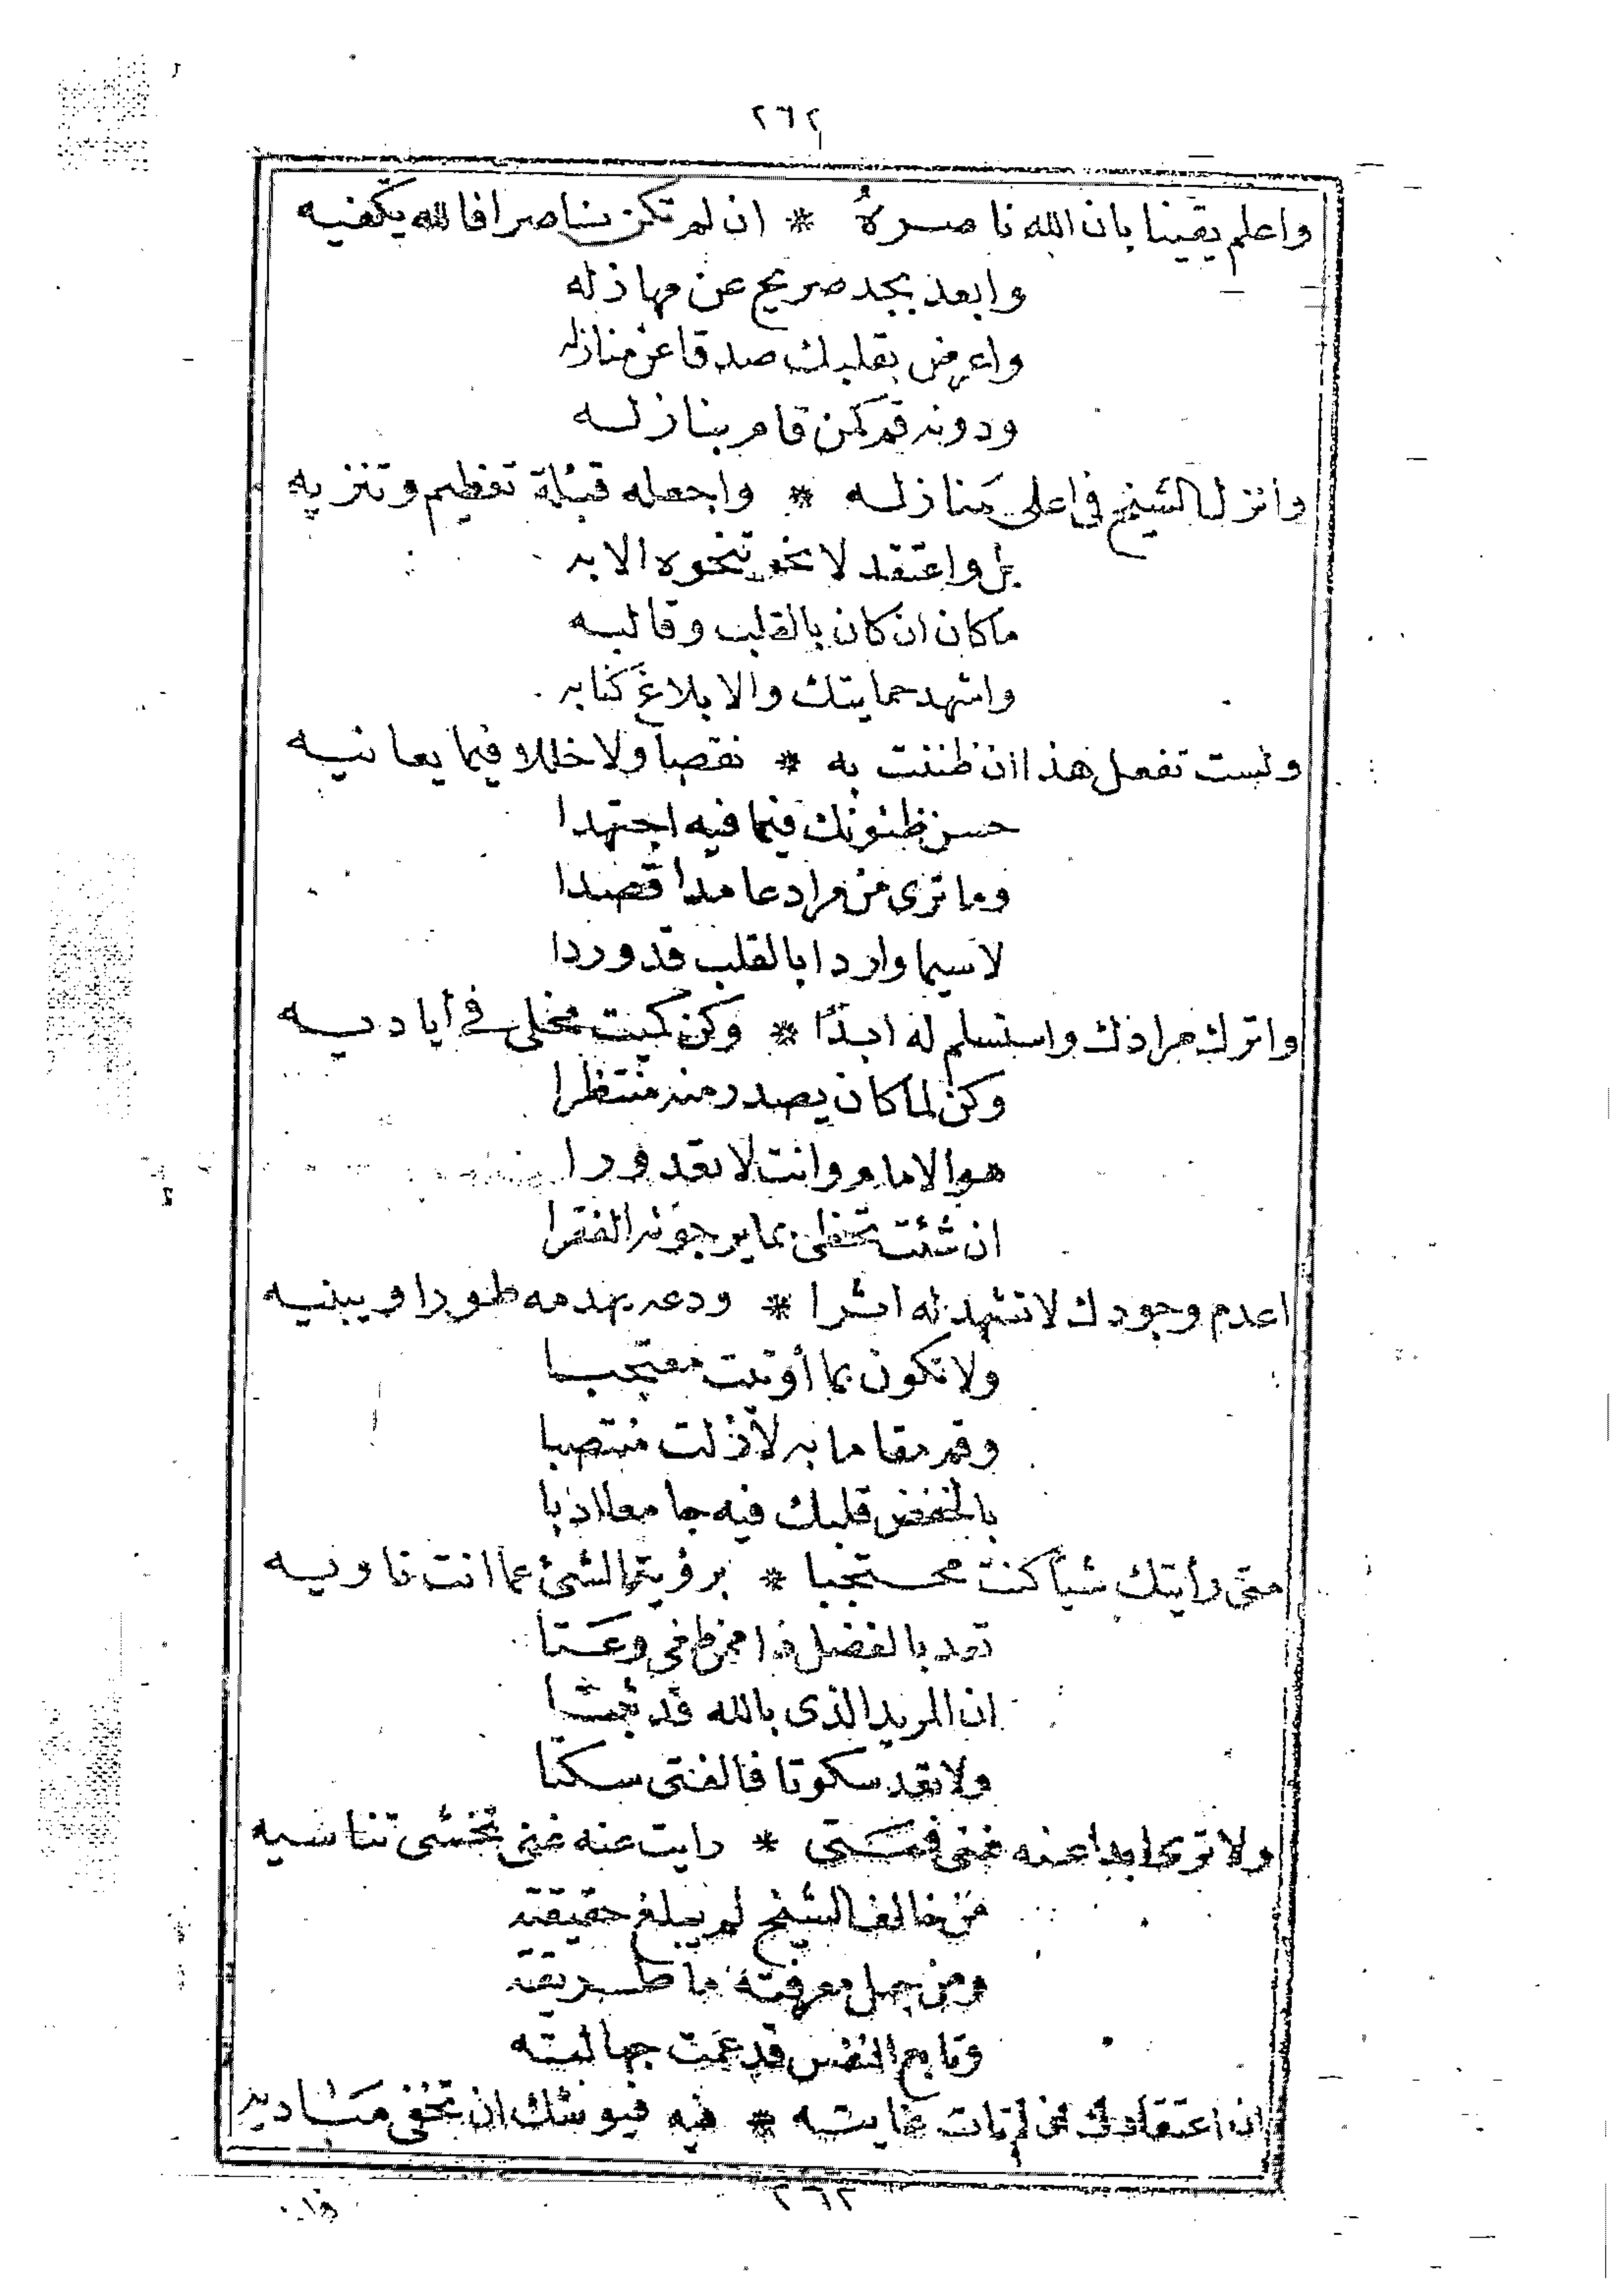 ٢٦٢
واعلم يقينا بان الله ناصره * ان لم تكن ناصرا فالله يكفيه
وابعد بجد صريح عن مهاذله
واعرض بقلبك صدقا عن منازله
ودونه قم كمن قام بنازله
وانزل الشيخ في اعلى منازله * واجعله قبلة تعظيم وتنزيه
بل واعتقد لا نحو تنحوه الابه
ما كان ان كان بالقلب وقالبه
واشهد حمايتك والابلاغ كتابه
ولست تفعل هذا ان ظننت به * نقصا ولا خللا فيما يعانيه
حسن ظنونك فيما فيه اجتهدا
وما ترى من مراد عامدا قصدا
لاسيما واردا بالقلب قد وردا
واترك مرادك واستسلم له ابدا * وكن كميت مخلى في أياديه
وكن لما كان يصدر منه منتظرا
هو الامام وانت لا تعد ورا
ان شئت تحظى بما يرجونه الفقرا
اعدم وجودك لا تشهد له اثرا * ودعه يهدمه طورا ويبنيه
ولا تكون بما أوتيت معتجبا
وقم مقاما به لازلت منتصبا
بالخفض قلبك فيه جامعا ادبا
متى رأيتك شيأ كنت محتجبا * برؤيتها الشئ عما انت ناويه
تعد بالفضل
ان المريد الذي بالله قد
ولا تعد سكوتا فالفتى سكتا
ولا ترى ابدا عنه غنى فمتى * رايت عنه غنى تخشى تناسيه
من خالف الشيخ لم يبلغ حقيقته
ومن جهل معرفته ما طريقته
وتابع النفس قد عمت جهالته
ان اعتقادك ان لم تات غايته * فيه فيوشك ان تخفى مباديه
٢٦٢
فان